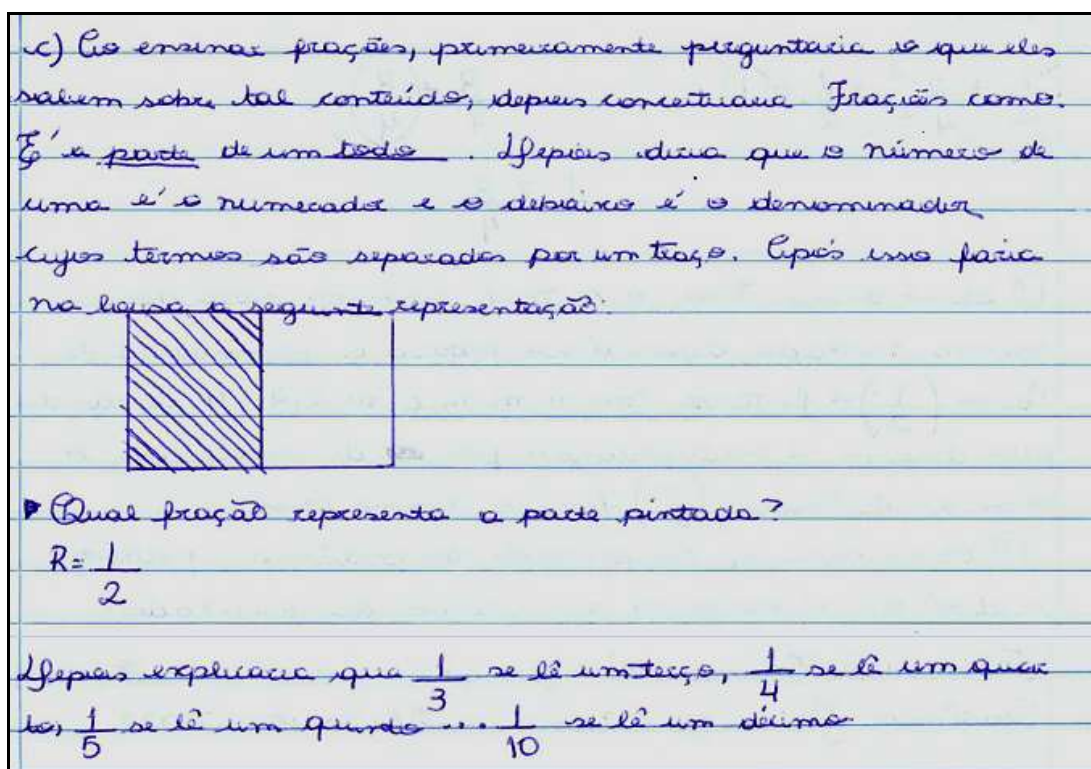 c) Ao ensinar frações, primeiramente perguntaria o que eles
sabem sobre tal conteúdo, depois conceituaria Frações como:
É a parte de um todo. Depois diria que o número de
uma é o numerador e o debaixo é o denominador
cujos termos são separados por um traço. Após isso faria
na lousa a seguinte representação:
Qual fração representa a parte pintada?
R= 1/2
Depois explicaria que 1/3 se lê um terço, 1/4 se lê um quar
to, 1/5 se lê um quinto ... 1/10 se lê um décimo